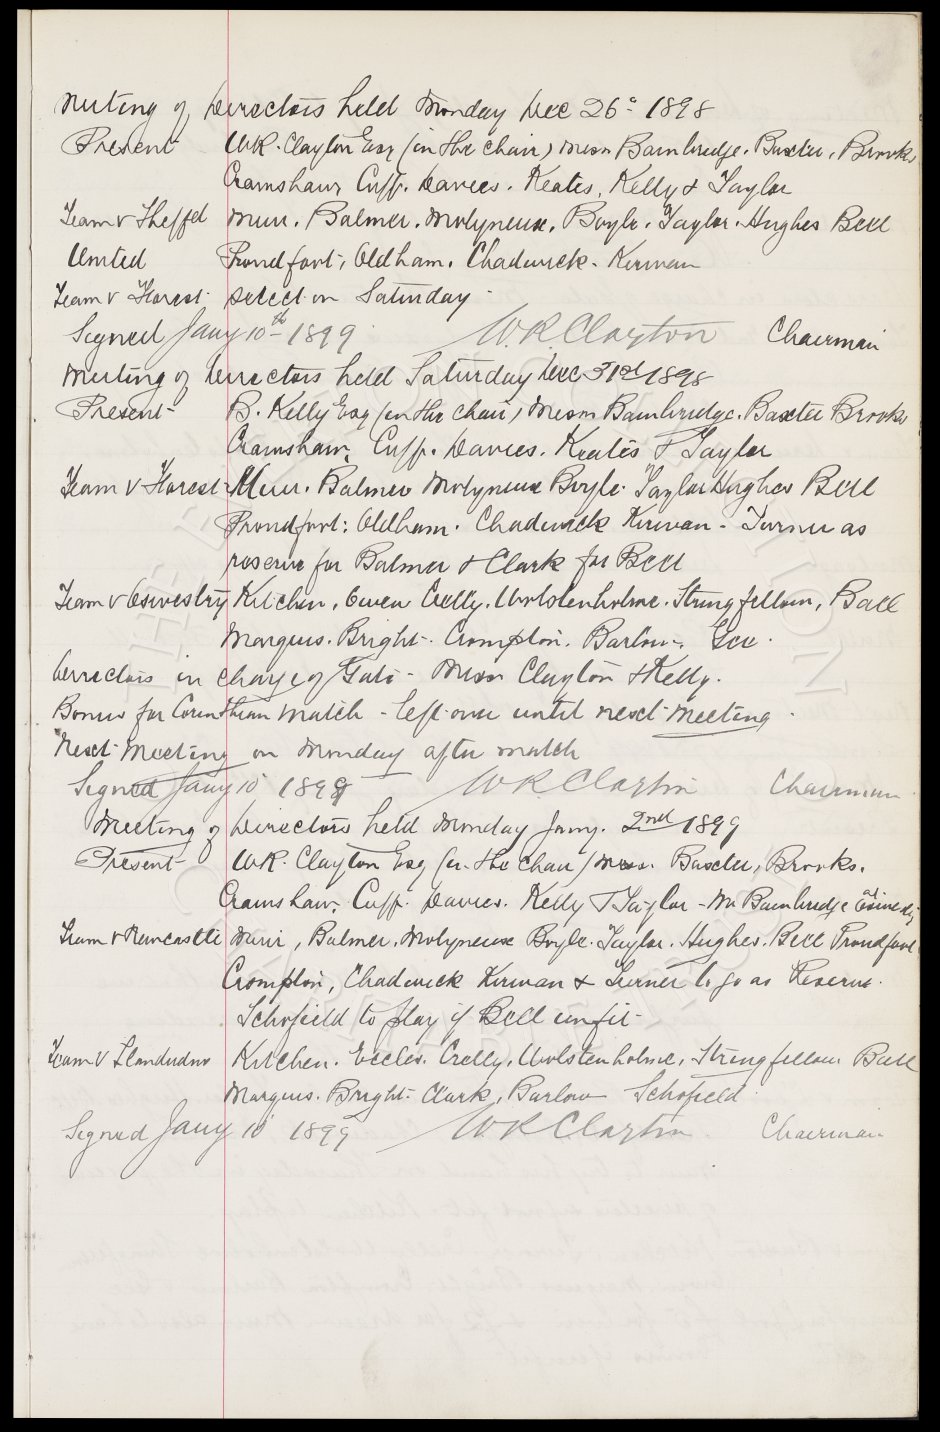 Meeting of Directors held Monday Dec 26th 1898
Present W.R. Clayton Esq (in the chair) Messrs Bainbridge. Baxter, Brooks
Cramshaw, Cuff. Davies. Keates, Kelly & Taylor
Team v Sheffd Muir. Balmer. Molyneux, Boyle. Taylor. Hughes Bell
United Proudfoot, Oldham. Chadwick. Kirwan
Team v Forest select on Saturday
Signed Jany 10th 1899 W.R. Clayton Chairman
Meeting of Directors held Saturday Dec 31st 1898
Present B. Kelly Esq (in the chair) Messrs Bainbridge. Baxter Brooks
Cramshaw, Cuff. Davies. Keates & Taylor
Team v Forest Muir. Balmer Molyneux Boyle. Taylor Hughes Bell
Proudfoot: Oldham. Chadwick Kirwan - Turner as
reserve for Balmer & Clark for Bell
Team v Oswestry Kitchen, Owen Crelly. Wolstenholme. Stringfellow, Ball
Marquis. Bright. Crompton. Barlow. Gee.
Directors in charge of Gate - Messrs Clayton & Kelly.
Bonus for Corinthian match - left over until next meeting.
Next meeting on Monday after match
Signed Jany 10 1899 W.R. Clayton Chairman
Meeting of Directors held Monday Jany. 2nd 1899
Present W.R. Clayton Esq (in the chair) Messrs. Baxter, Brooks.
Cramshaw, Cuff. Davies. Kelly & Taylor - Mr Bainbridge at Oswestry
Team v Newcastle Muir, Balmer. Molyneux Boyle. Taylor. Hughes. Bell Proudfoot
Crompton, Chadwick Kirwan & Turner to go as Reserve.
Schofield to play if Bell unfit
Team v Llandudno Kitchen. Eccles. Crelly. Wolstenholme, Stringfellow Ball
Marquis. Bright. Clark, Barlow Schofield
Signed Jany 10 1899 W R Clayton Chairman